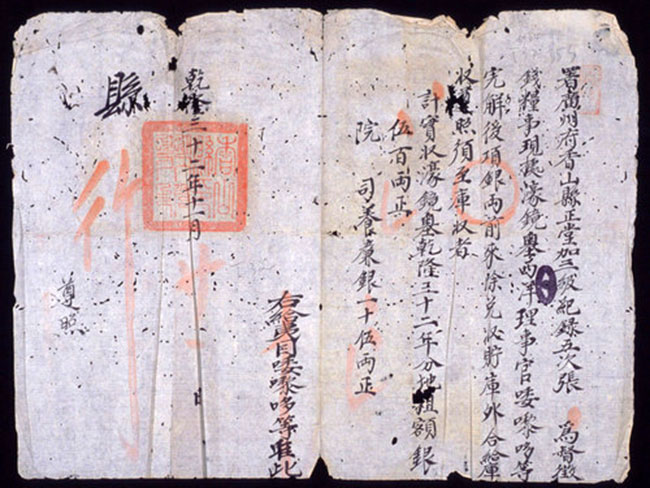 署廣州府香山縣正堂加三級紀錄五次張 為督徵
錢糧事現據濠鏡墺西洋理事官唩嚟哆等
完解後項銀兩前來除兌收貯庫外合給庫
收 照須至庫收者
計實收濠鏡墺乾隆三十二年分地租額銀
伍百兩正
院 司養廉銀一十伍兩正
右給 目唩嚟哆等准此
乾隆三十二年十一月 日
縣 行
遵照